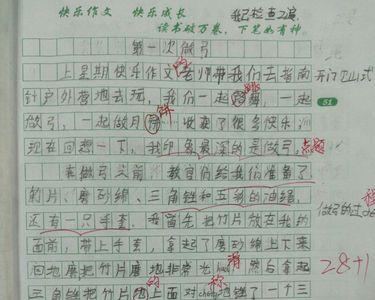 快乐作文 快乐成长 我已检查2遍
读书破万卷，下笔如有神
第一次做弓
上星期快乐作文的老师带我们去指南 开门见山式
针户外营地去玩，我们一起 一起 51
做弓，一起做月饼 收获了很多快乐
现在回想一下，我印象最深的是做弓。点题
在做弓之前，教官们给我们准备了
竹片、磨砂绵、三角锉和五彩的油绳，
还有一只手套。我首先把竹片放在我的 做弓的过
面前，带上手套，拿起了磨砂绵上下来
回地磨把竹片磨地非常光滑 然后拿起 28+1
三角锉把竹片的上面对称地锉了一个三